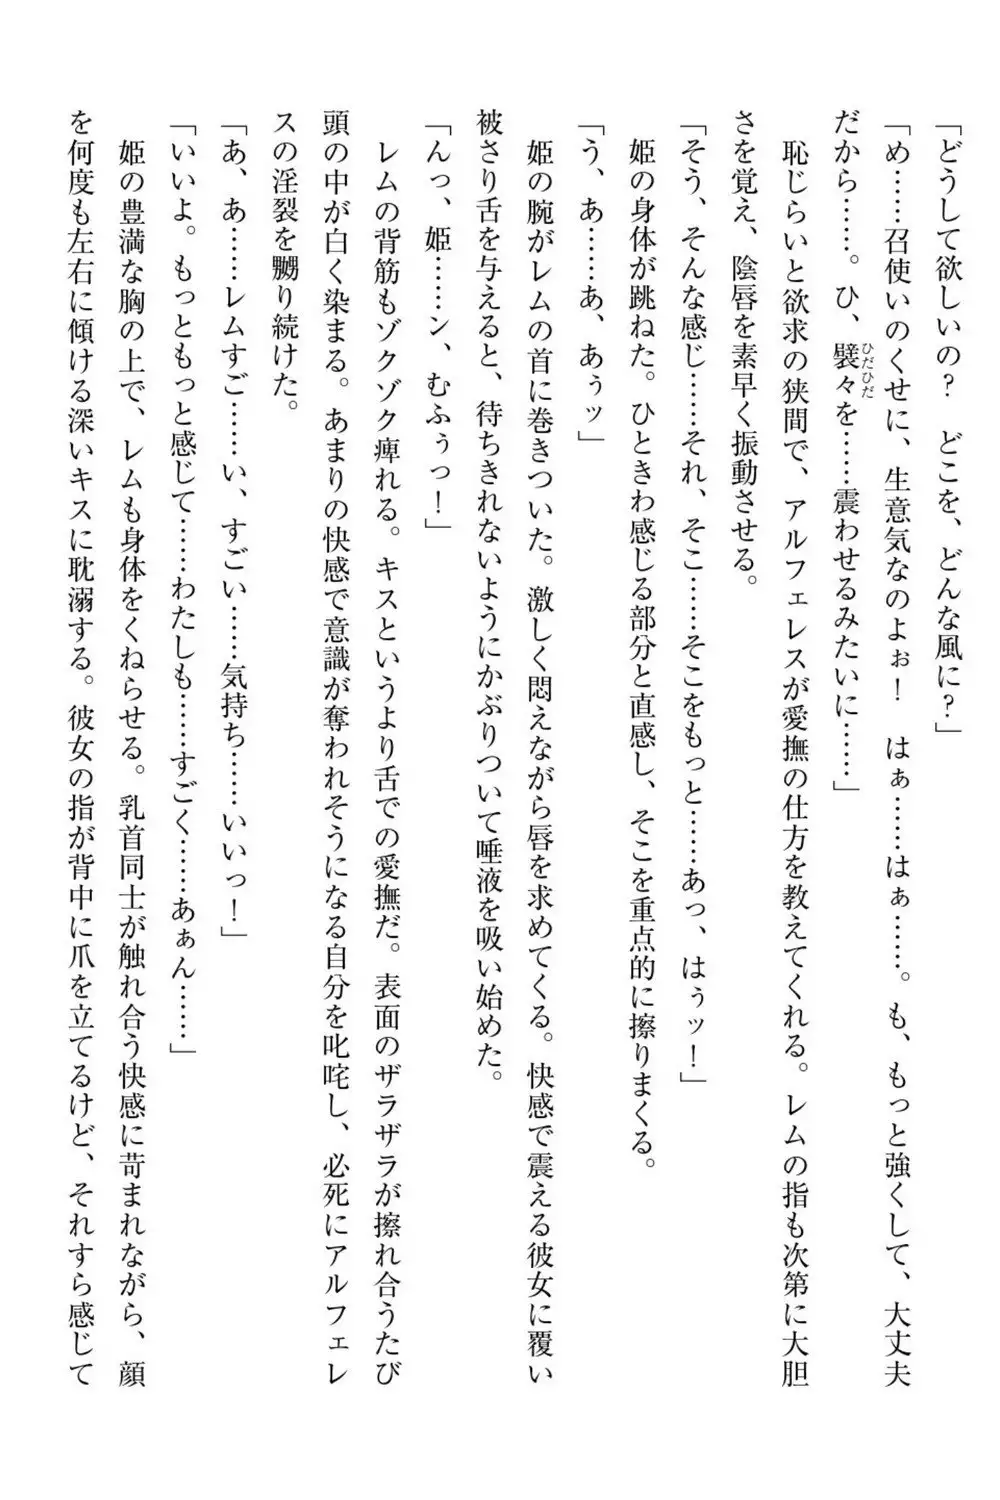 「どうして欲しいの？　どこを、どんな風に？」
「め……召使いのくせに、生意気なのよぉ！　はぁ……はぁ……。も、もっと強くして、大丈夫
だから……。ひ、襞々を……震わせるみたいに……」
　恥じらいと欲求の狭間で、アルフェレスが愛撫の仕方を教えてくれる。レムの指も次第に大胆
さを覚え、陰唇を素早く振動させる。
「そう、そんな感じ……それ、そこ……そこをもっと……あっ、はぅッ！」
　姫の身体が跳ねた。ひときわ感じる部分と直感し、そこを重点的に擦りまくる。
「う、あ……あ、あぅッ」
　姫の腕がレムの首に巻きついた。激しく悶えながら唇を求めてくる。快感で震える彼女に覆い
被さり舌を与えると、待ちきれないようにかぶりついて唾液を吸い始めた。
「んっ、姫……ン、むふぅっ！」
　レムの背筋もゾクゾク痺れる。キスというより舌での愛撫だ。表面のザラザラが擦れ合うたび
頭の中が白く染まる。あまりの快感で意識が奪われそうになる自分を叱咤し、必死にアルフェレ
スの淫裂を嬲り続けた。
「あ、あ……レムすご……い、すごい……気持ち……いいっ！」
「いいよ。もっともっと感じて……わたしも……すごく……あぁん……」
　姫の豊満な胸の上で、レムも身体をくねらせる。乳首同士が触れ合う快感に苛まれながら、顔
を何度も左右に傾ける深いキスに耽溺する。彼女の指が背中に爪を立てるけど、それすら感じて